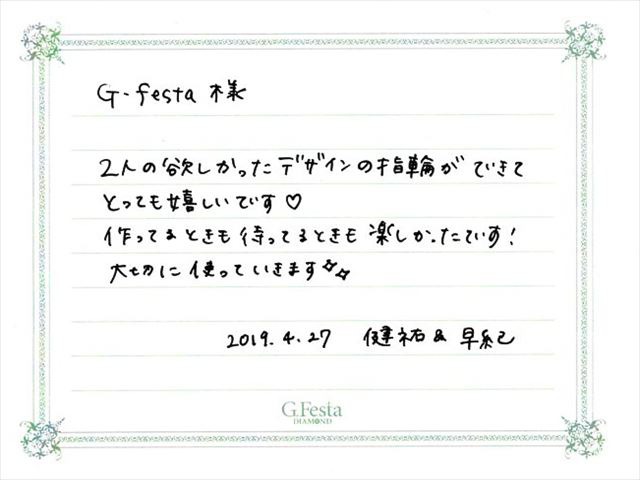 G-festa 様
2人の欲しかったデザインの指輪ができて
とっても嬉しいです♡
作ってるときも待ってるときも楽しかったです!
大切に使っていきます✧✧
2019.4.27 健祐&早紀
G.Festa
DIAMOND